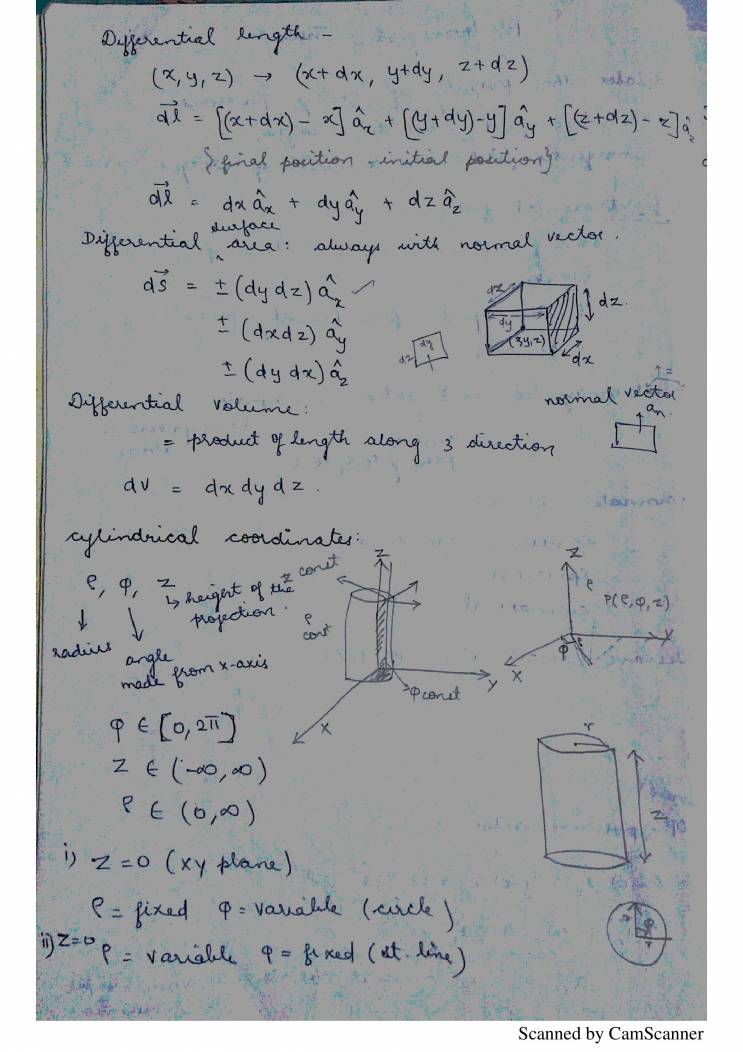 Differential length -
(x, y, z) → (x+dx, y+dy, z+dz)
dl⃗ = [(x+dx) - x] â_x + [(y+dy)-y] â_y + [(z+dz) - z] â_z
{final position - initial position}
dl⃗ = dx â_x + dy â_y + dz â_z
Differential surface area : always with normal vector.
ds⃗ = ± (dy dz) â_x ✓
± (dxdz) â_y
± (dy dx) â_z
dz
dy
dz
dy
(x,y,z)
dz.
dx
Differential volume :
normal vector
a_n.
= product of length along 3 direction
dv = dx dy dz.
cylindrical coordinates:
ρ, φ, z
↳ height of the projection.
radius
angle made from x-axis
z const
ρ const
φ const
Z
Y
X
Z
ρ
P(ρ,φ,z)
Y
X
φ
φ ∈ [0, 2π]
z ∈ (-∞, ∞)
ρ ∈ (0, ∞)
r
z
i) z=0 (xy plane)
ρ = fixed φ = variable (circle)
ii) z=0 ρ = variable φ = fixed (st. line)
Scanned by CamScanner